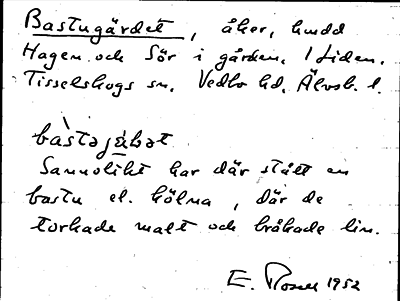 Bastugärdet, åker, hmdd
Hagen och Sör i gården, Liden,
Tisselskogs sn, Vedbo hd, Älvsb. l.
bàstəjábət
Sannolikt har där stått en
bastu el. kölna, där de
torkade malt och bråkade lin.
E. 1952